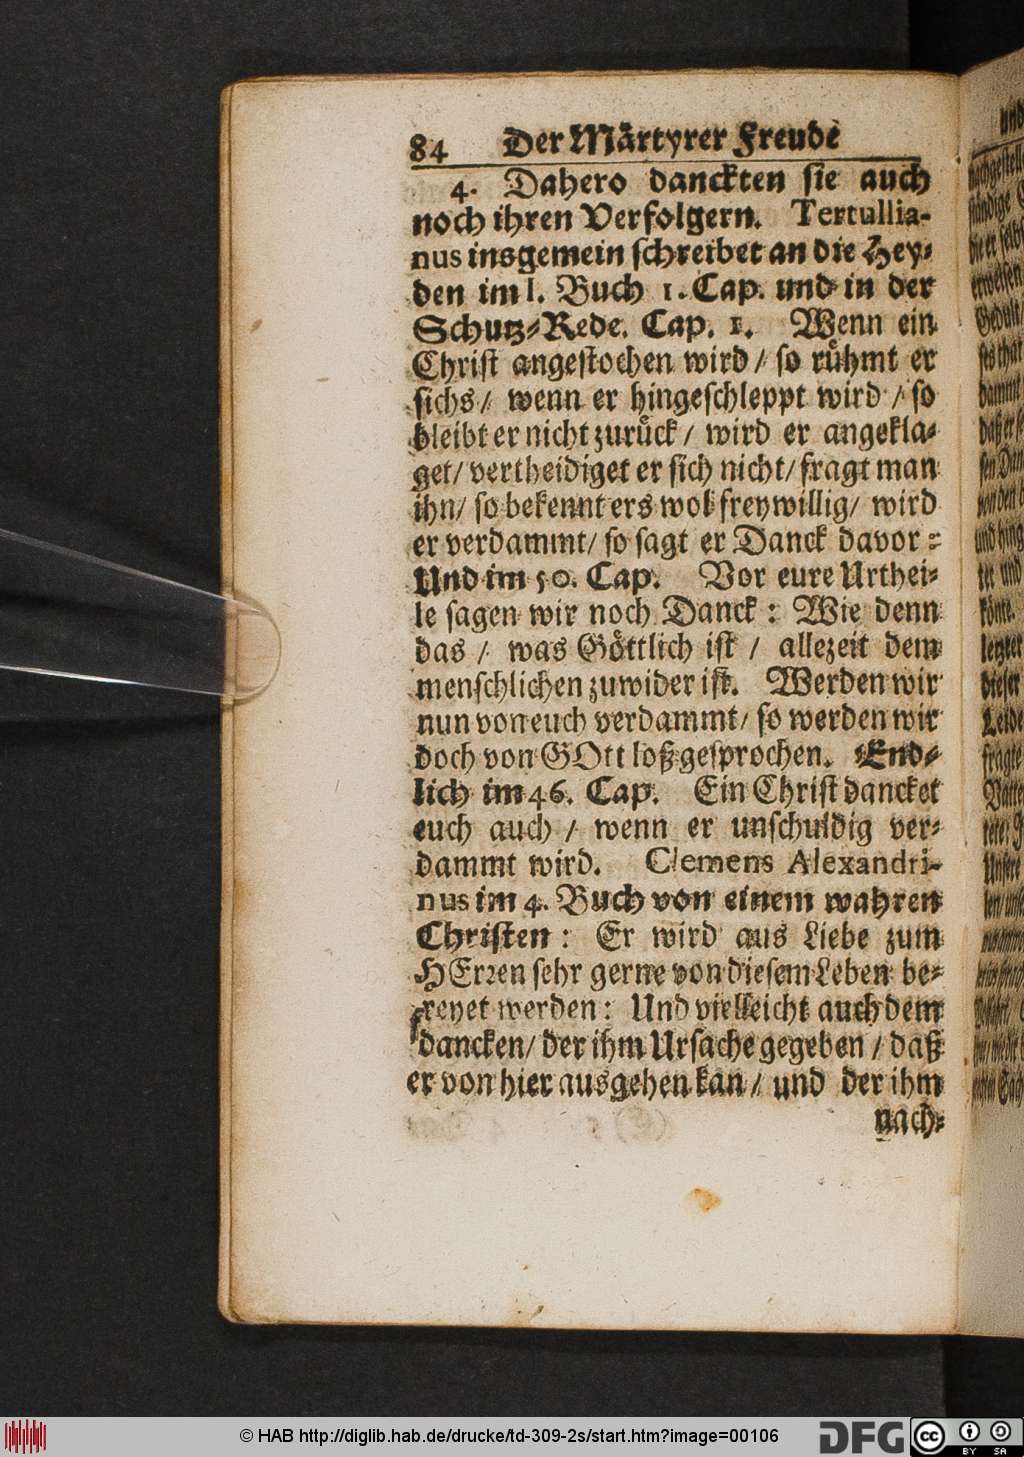 84 Der Mårtyrer Freude
4. Dahero danckten sie auch
noch ihren Verfolgern. Tertullia-
nus insgemein schreibet an die Hey-
den im I. Buch 1. Cap. und in der
Schutz-Rede. Cap. 1. Wenn ein
Christ angestochen wird / so růhmt er
sichs / wenn er hingeschleppt wird / so
bleibt er nicht zurůck / wird er angekla-
get / vertheidiget er sich nicht / fragt man
ihn / so bekennt ers wol freywillig / wird
er verdammt / so sagt er Danck davor :
Und im 50. Cap. Vor eure Urthei-
le sagen wir noch Danck : Wie denn
das / was Gőttlich ist / allezeit dem
menschlichen zuwider ist. Werden wir
nun von euch verdammt / so werden wir
doch von GOtt loßgesprochen. End-
lich im 46. Cap. Ein Christ dancket
euch auch / wenn er unschuldig ver-
dammt wird. Clemens Alexandri-
nus im 4. Buch von einem wahren
Christen : Er wird aus Liebe zum
HErren sehr gerne von diesem Leben be-
freyet werden : Und vielleicht auch dem
dancken / der ihm Ursache gegeben / daß
er von hier ausgehen kan / und der ihm
nach-
© HAB http://diglib.hab.de/drucke/td-309-2s/start.htm?image=00106
DFG
cc
BY SA